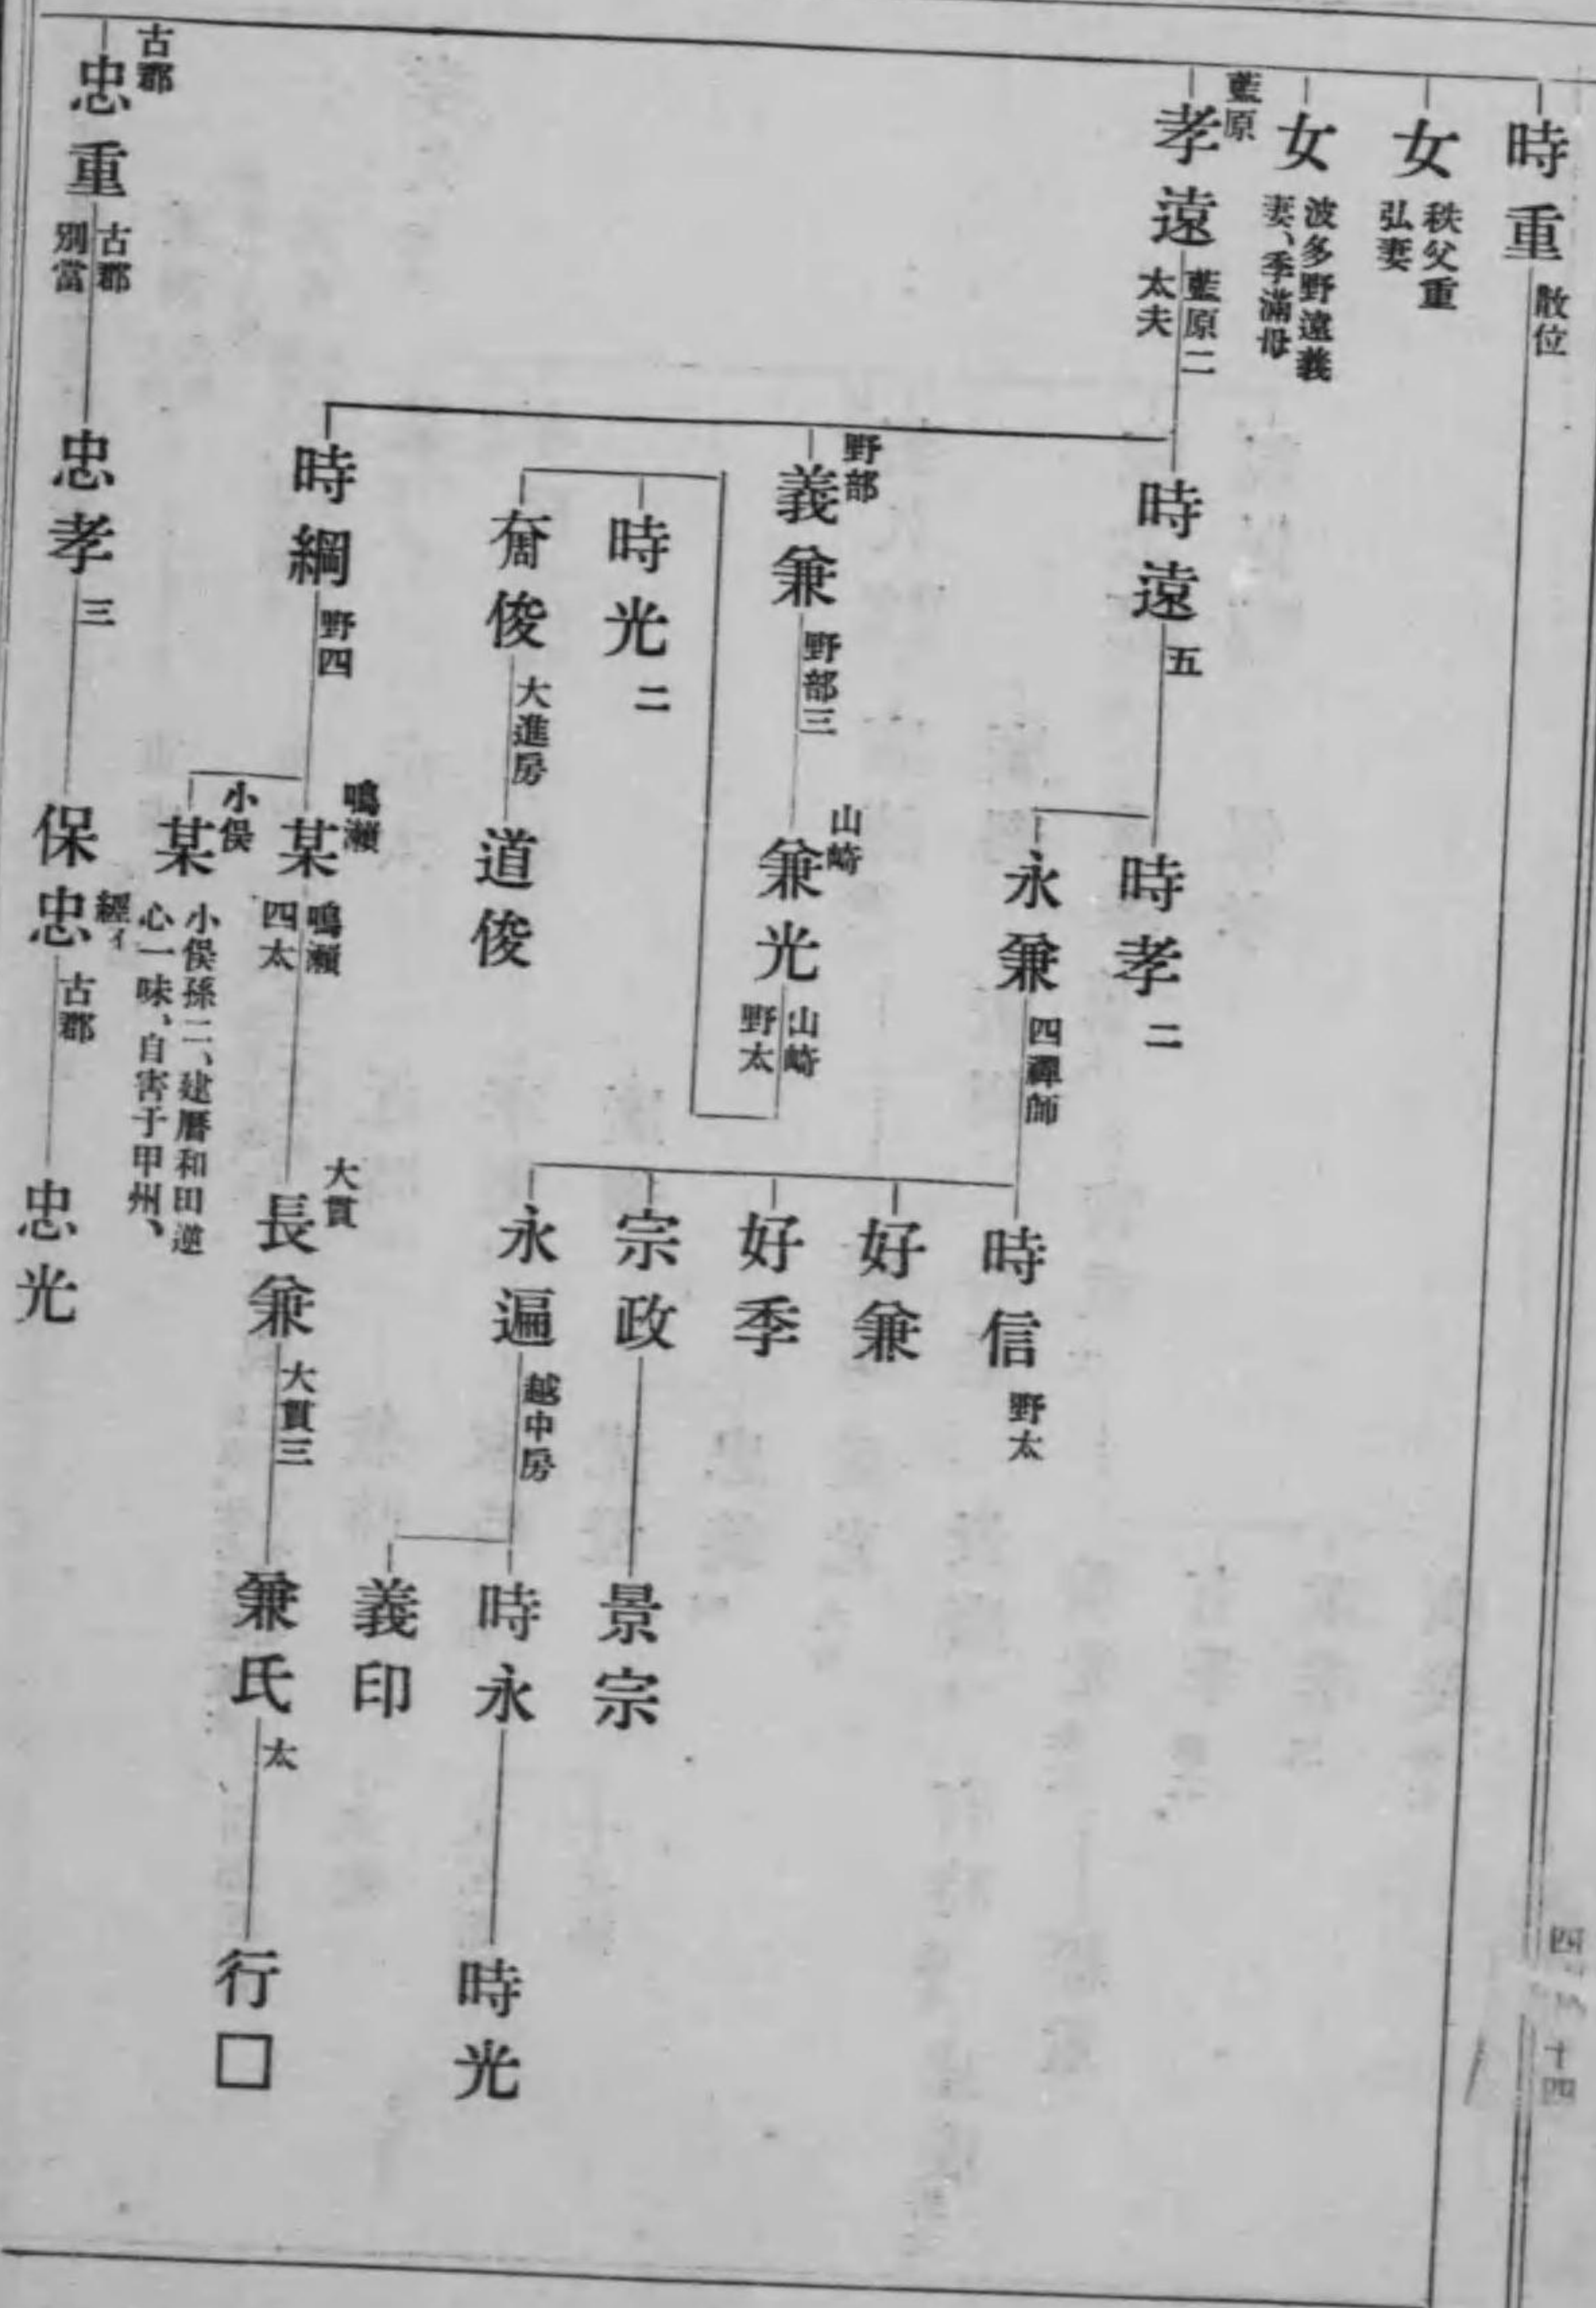 時重 散位
女 秩父重
弘妻
女 波多野遠義
妻、季滿母
藍原
孝遠 藍原二
太夫
時遠 五
時孝 二
永兼 四禪師
時信 野太
好兼
好季
宗政
景宗
永遍 越中房
時永
時光
義印
野部
義兼 野部三
山崎
兼光 山崎
野太
時光 二
俊 大進房
道俊
時綱 野四
鳴瀬
某 鳴瀬
四太
大貫
長兼 大貫三
兼氏 太
行□
小俣
某 小俣孫二、建曆和田逆
心一味、自害于甲州、
古郡
忠重 古郡
別當
忠孝 三
保忠 經イ 古郡
忠光